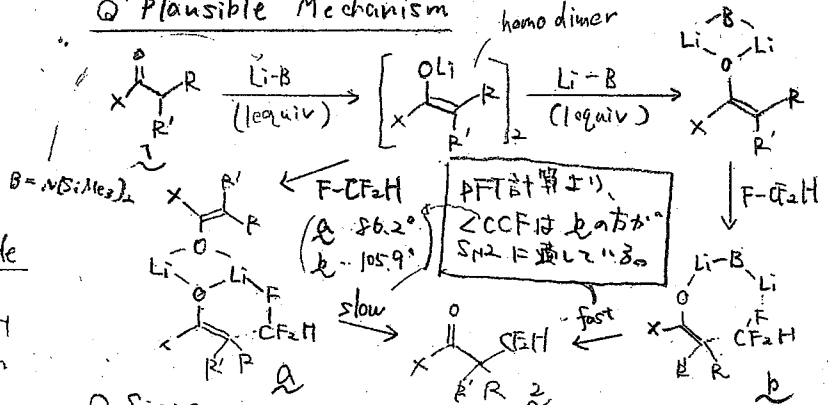 Plausible Mechanism
homo dimer
Li-B
(1equiv)
OLi
X
R
R'
2
Li-B
(1equiv)
Li
B
Li
O
X
R
R'
O
X
R
R'
1
B = N(SiMe3)2
F-CF2H
a 86.2°
b 105.9°
DFT計算より、
∠CCFは b の方が
SN2 に適している。
F-CF2H
X
R'
R
O
Li
Li
O
F
CF2H
R'
R
a
slow
O
X
CF2H
R'
R
2
fast
Li-B
Li
O
F
X
CF2H
R'
R
b